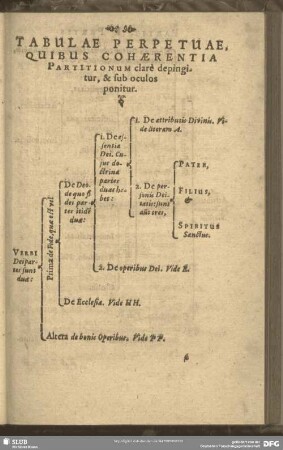 TABULAE PERPETUAE,
QUIBUS COHÆRENTIA
PARTITIONUM clarè depingi-
tur, & sub oculos
ponitur.
VERBI
Dei par-
tes sunt
duæ:
Prima de Fide, quæ est vel
De Deo:
de quo fi-
dei par-
tes itidē
duæ:
1. De es-
sentia
Dei. Cu-
jus do-
ctrinæ
partes
duæ ha-
bet:
1. De attributis Divinis. Vi-
de literam A.
2. De per-
sonis Dei-
tatis: sunt
aūt tres,
PATER,
FILIUS,
&
SPIRITUS
Sanctus.
2. De operibus Dei. Vide E.
De Ecclesia. Vide H.
Altera de bonis Operibus. Vide PP.
SLUB
DFG